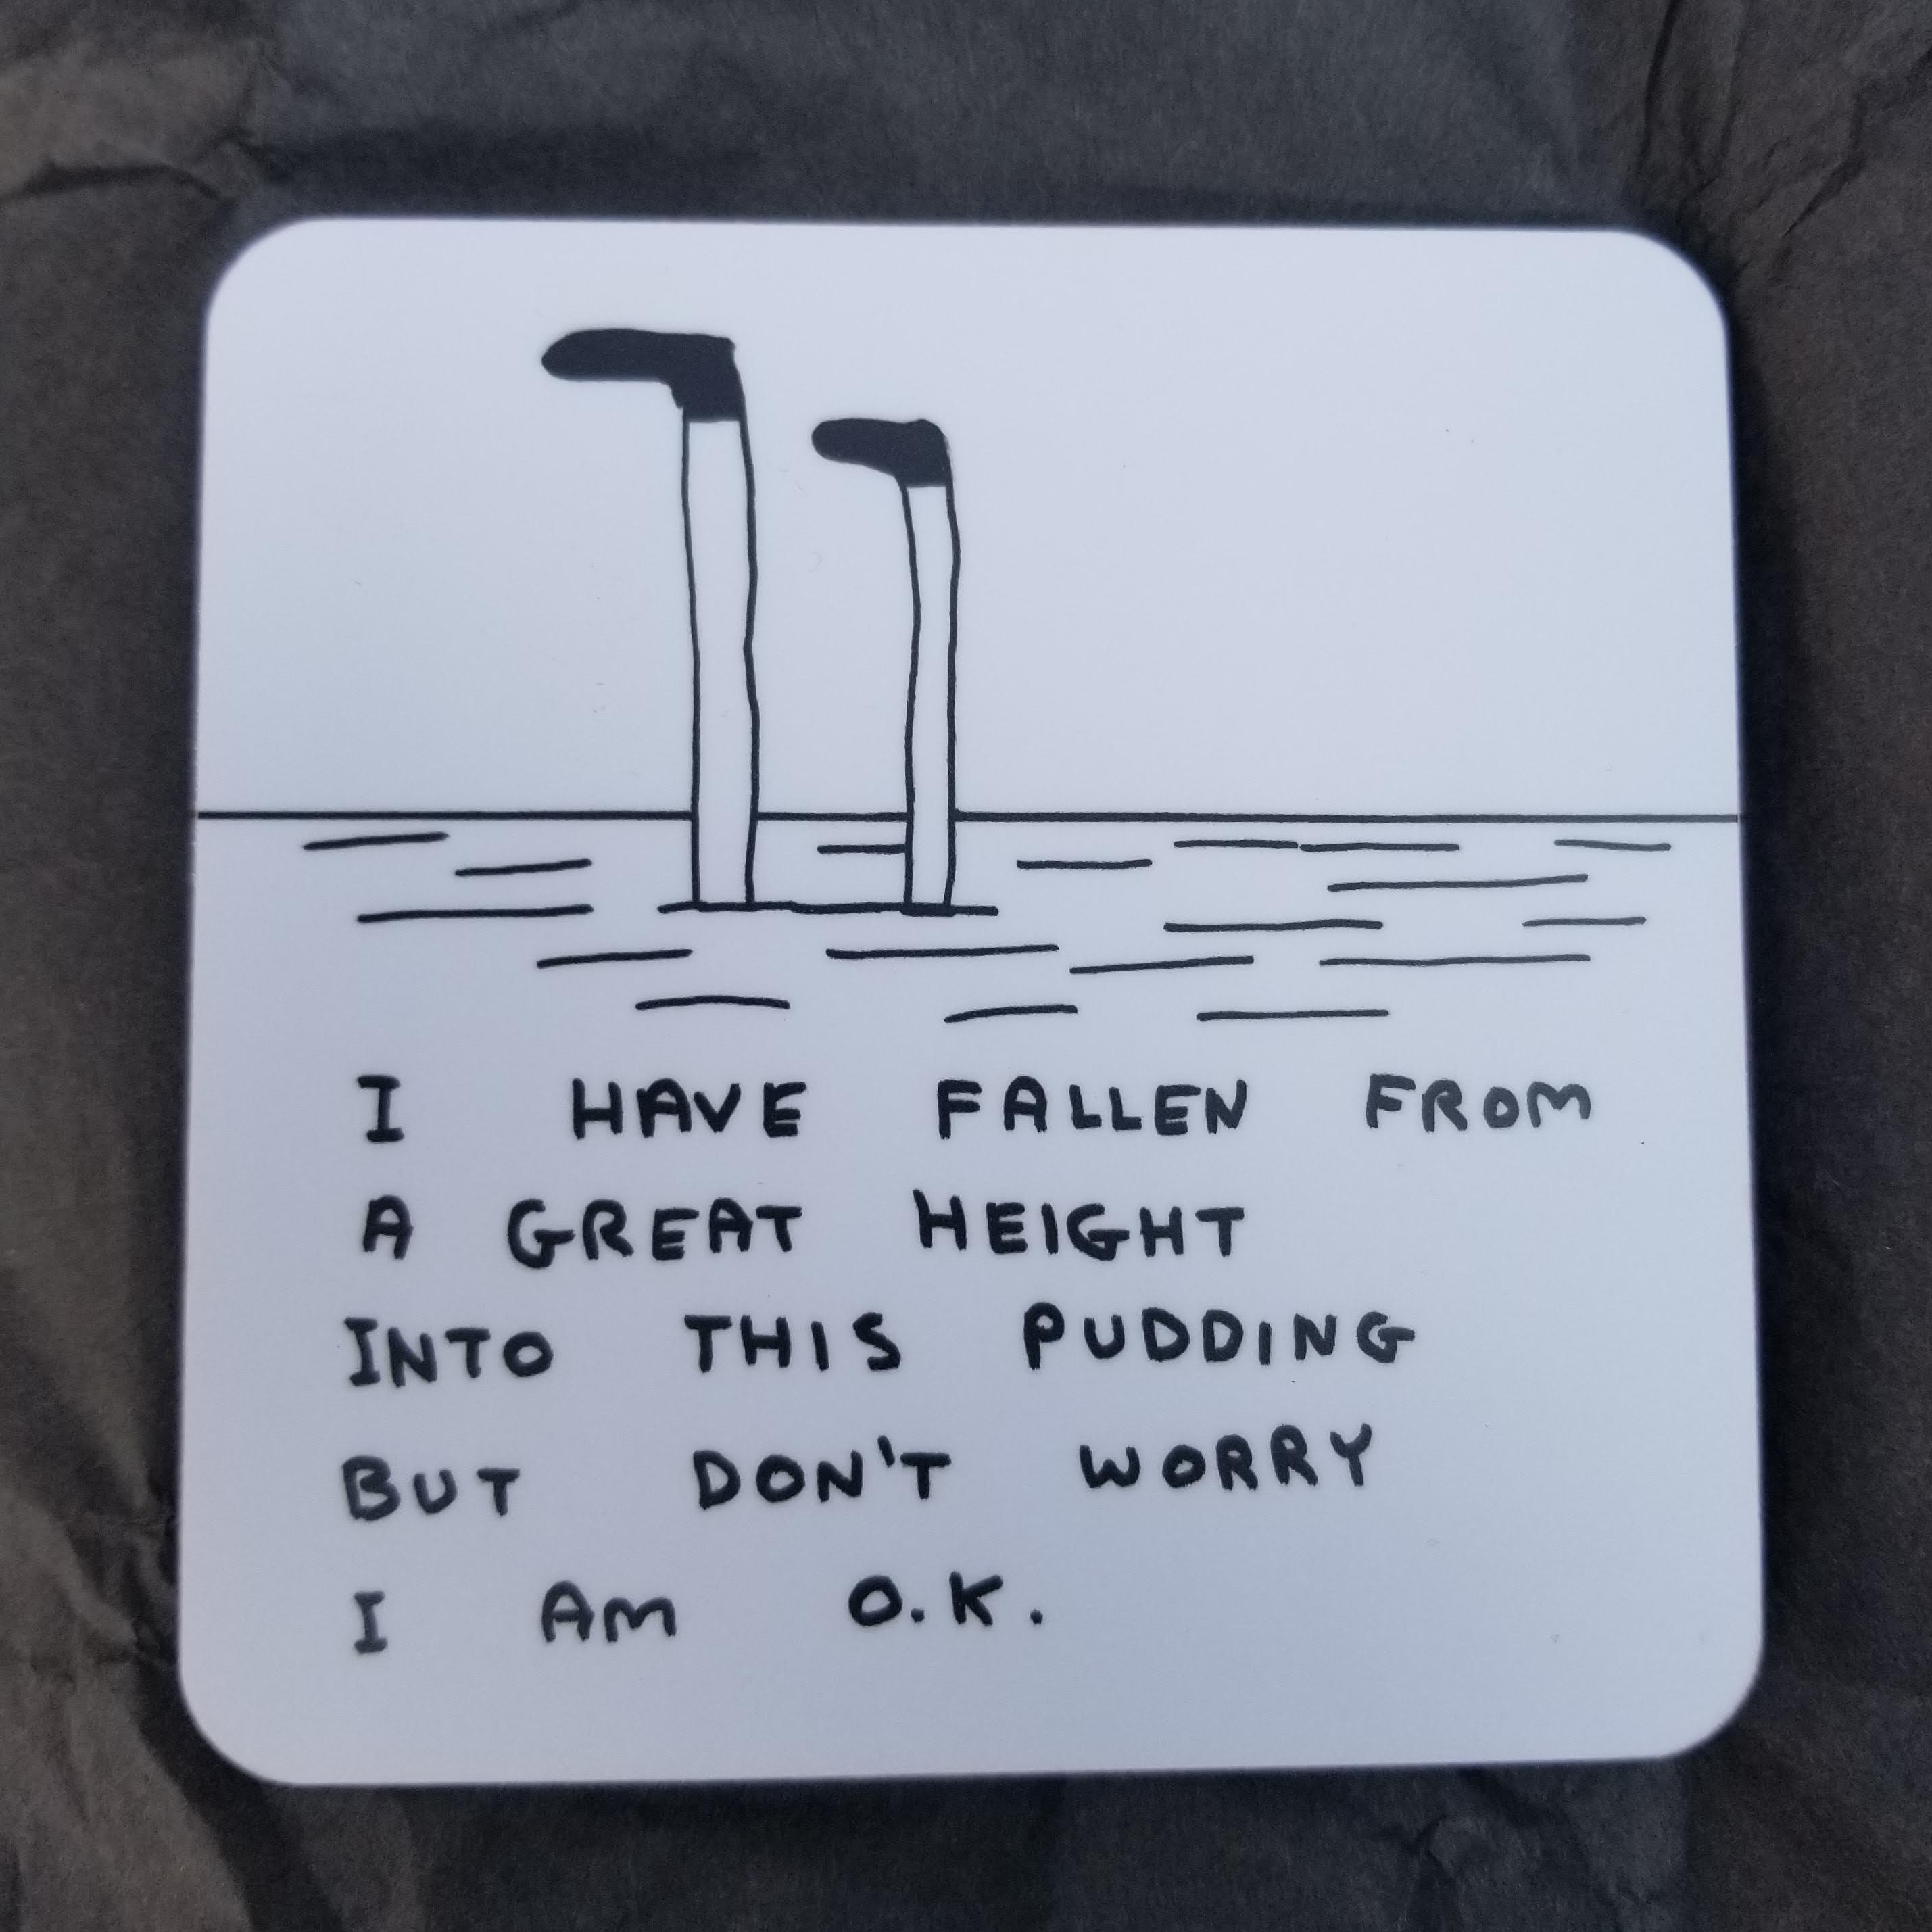 I HAVE FALLEN FROM
A GREAT HEIGHT
INTO THIS PUDDING
BUT DON'T WORRY
I AM O.K.